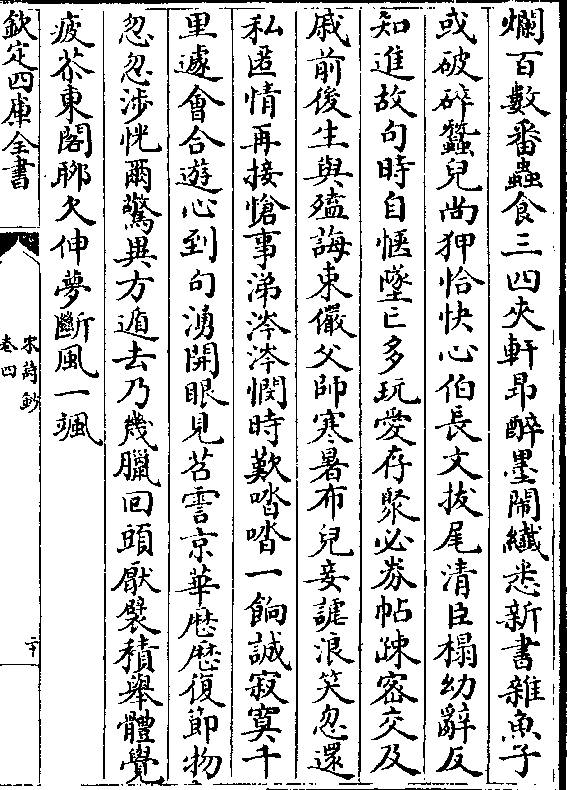 爛百數番蟲食三四夾軒昂醉墨鬧纖悉新書雜魚子
或破碎蠶兒尚狎恰快心伯長文拔尾清臣榻幼辭反
知進故句時自愜墜亡多玩愛存聚必券帖疎密交及
戚前後生與殪誨束儼父師寒暑布兒妾謔浪笑忽還
私匿情再接愴事涕涔涔憫時歎喀喀一餉誠寂寞千
里遽會合遊心到句湧開眼見苕霅京華厯厯復節物
忽忽涉恍爾驚異方遁去乃幾臘回頭厭襞積舉體覺
疲苶東閣聊欠伸夢斷風一颯
欽定四庫全書
宋詩鈔
卷四
二十